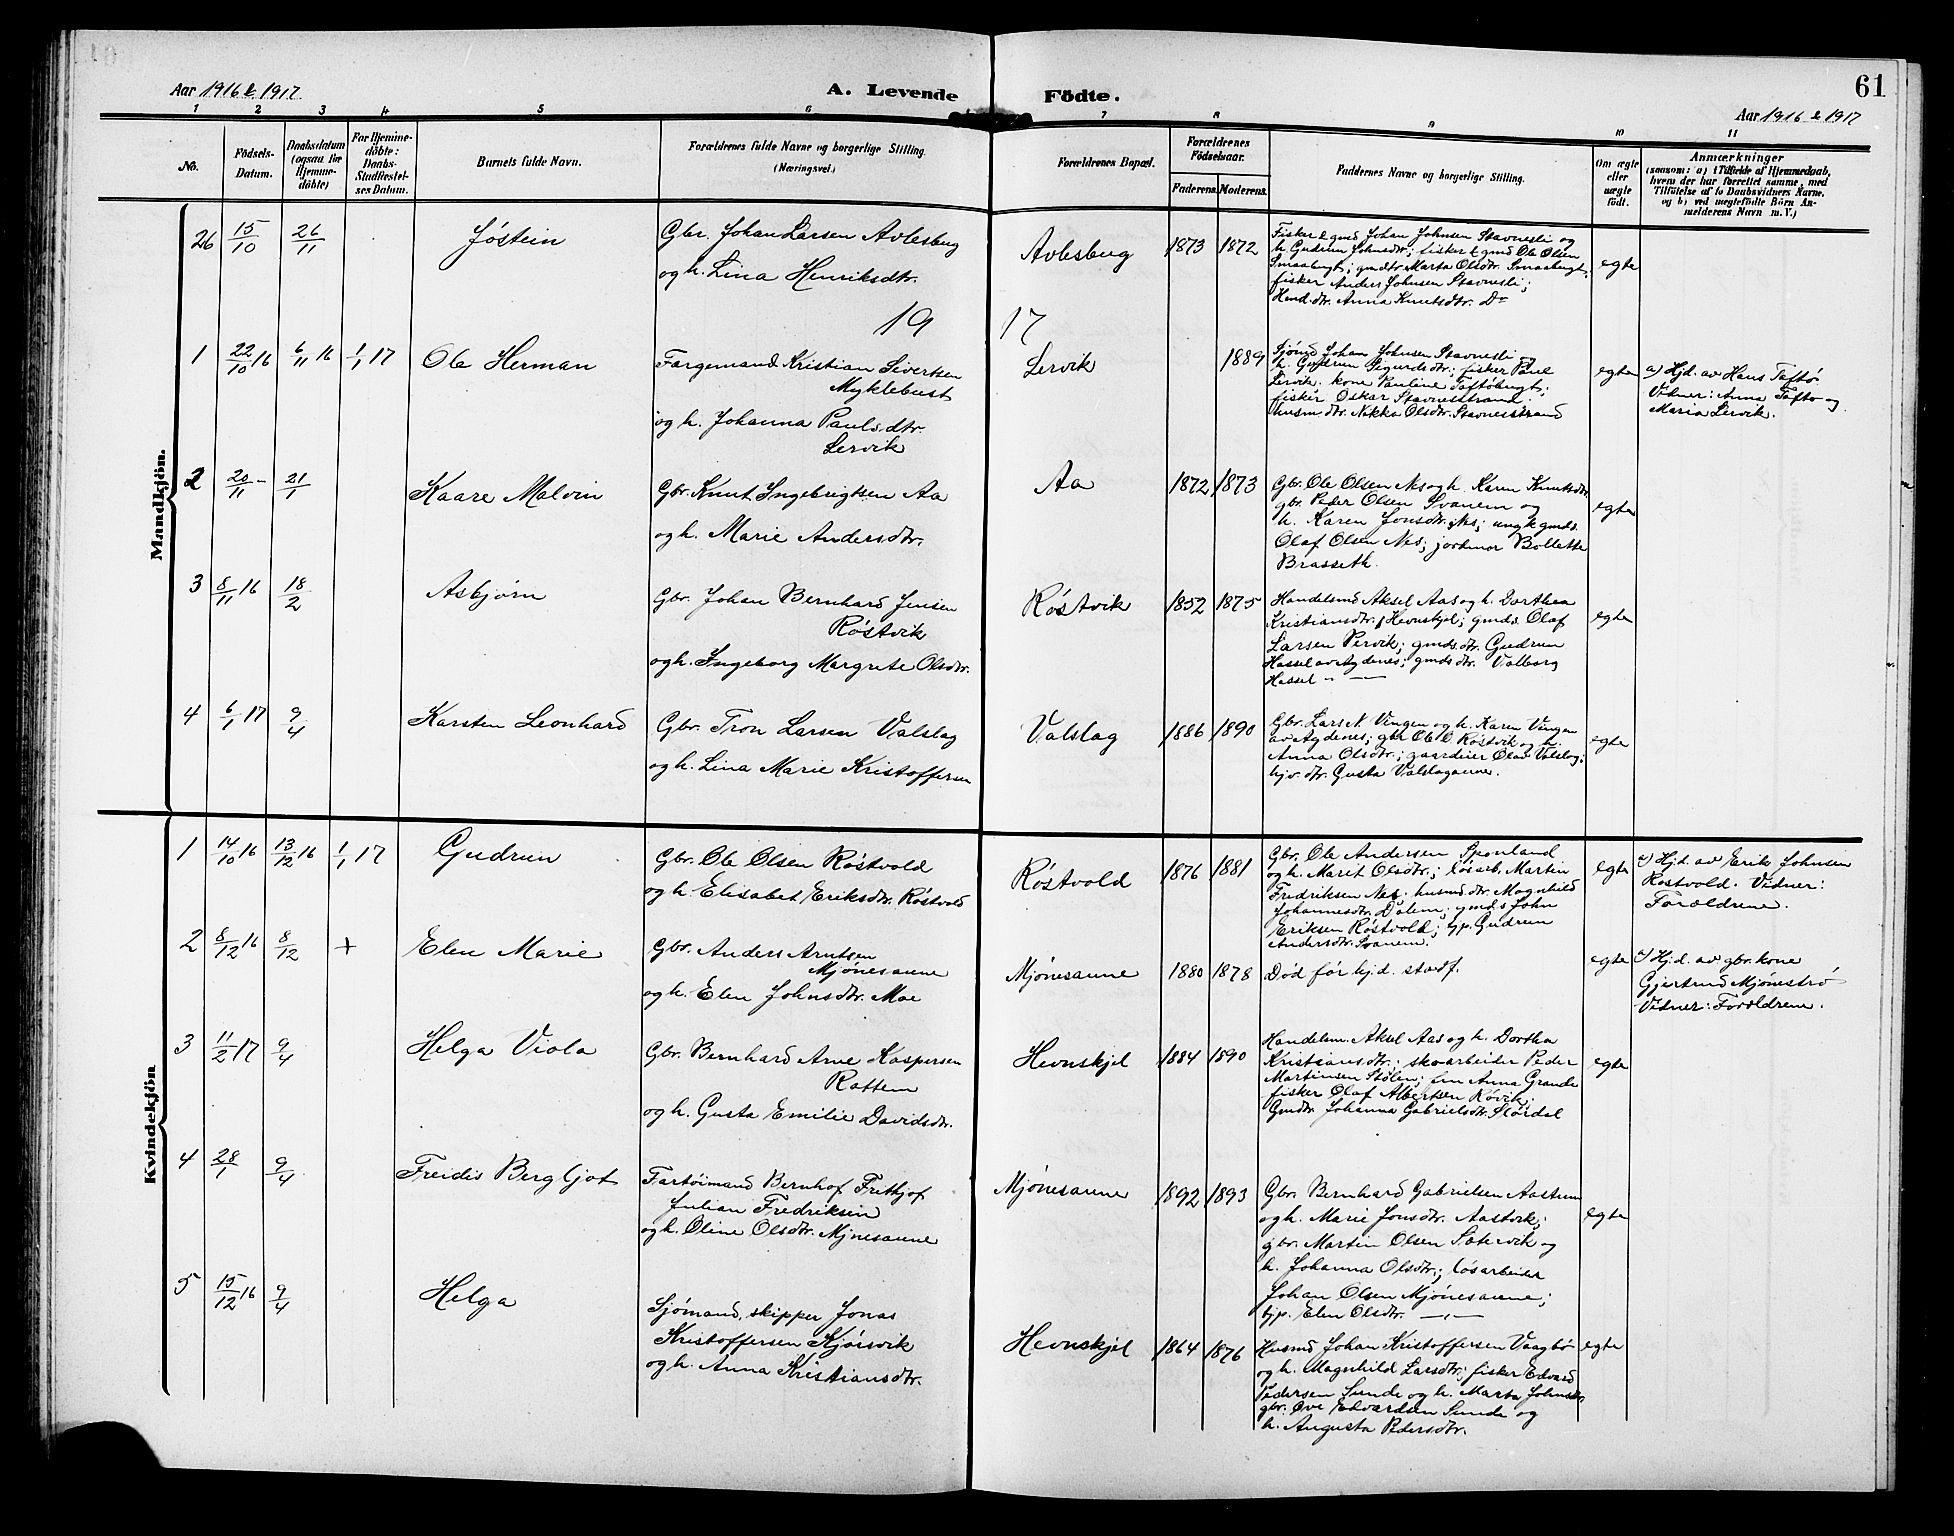 61
Aar 1916 & 1917
A. Levende Födte.
Aar 1916 & 1917
1 2 3 4 5 6 7 8 9 10 11
No.
Födsels-
Datum.
Daabsdatum
(ogsaa for
Hjemme-
döbte)
For Hjemme-
döbte:
Daabs-
Stadfæstel-
ses Datum.
Barnets fulde Navn.
Forældrenes fulde Navne og borgerlige Stilling.
(Næringsvei.)
Forældrenes Bopæl.
Forældrenes
Födselsaar.
Faderens. Moderens.
Faddernes Navne og borgerlige Stilling.
Om ægte
eller
uægte
födt.
Anmærkninger
(saasom: a) i Tilfælde af Hjemmedaab,
hvem der har forrettet samme, med
Tilföielse af to Daabsvidners Navne,
og b) ved uægtefödte Börn An-
melderens Navn m. V.)
Mandkjön.
26 15/10 26/11 Jøstein
Gbr. Johan Larsen Avlesbug
og h. Lina Henriksdtr.
Avlesbug 1873 1872
Fisker & gmd Johan Johnsen Stavnesli og
h. Gudrun Johnsdtr; fisker & gmd Ole Olsen
Smaabugt; gmdtr. Marta Olsdtr. Smaabugt,
fisker Anders Johnsen Stavnesli;
Hmd.dtr. Anna Knutsdtr. Do
egte
19 17
1 22/10 16 6/11 16 1/1 17 Ole Herman
Fargemand Kristian Sivertsen
Myklebust
og h. Johanna Paulsdtr.
Lervik
Lervik 1889
Sjømd Johan Johnsen Stavnesli og
h. Gudrun Sigurdsdtr; fisker Paul
Lervik; kone Pauline Taftøbugt;
fisker Oskar Stavnesstrand.
husm.dtr. Nikka Olsdtr. Stavnesstrand
egte
a) Hjd. av Hans Taftø
Vidner: Anna Taftø og
Maria Lervik.
2 20/11 - 21/1 Kaare Malvin
Gbr. Knut Ingebrigtsen Aa
og h. Marie Andersdtr.
Aa 1872 1873
Gbr. Ole Olsen Nes og h. Karen Knutsdtr.
gbr. Peder Olsen Svanem og
h. Karen Jonsdtr. Nes; ungk gmds.
Olaf Olsen Nes; jordmor Bollette
Brasseth.
egte
3 8/11 16 18/2 Asbjørn
Gbr. Johan Bernhard Jensen
Røstvik
og h. Ingeborg Margrete Olsdtr.
Røstvik 1852 1875
Handelsmd Aksel Aas og h. Dorthea
Kristiansdtr. Hevnskjel; gmds. Olaf
Larsen Vervik; gmds.dtr. Gudrun
Hassel av Agdenes; gmds dtr. Valborg
Hassel - —
egte
4 6/1 17 9/4 Karsten Leonhard
Gbr. Tron Larsen Valslag
og h. Lina Marie Kristoffersen
Valslag 1886 1890
Gbr. Lars N. Vingen og h. Karen Vingen
av Agdenes; gbr Ole O. Røstvik og h.
Anna Olsdtr.; gaardeier Olav Valslag;
hjv. dtr. Gusta Valslagaune.
egte
Kvindekjön
1 14/10 16 13/12 16 1/1 17 Gudrun
Gbr. Ole Olsen Røstvold
og h. Elisabet Eriksdtr. Røstvold
Røstvold 1876 1881
Gbr. Ole Andersen Sponland
og h. Marit Olsdtr.; løsarb. Martin
Fredriksen Nes; husmd.dtr. Magnhild
Johannesdtr. Dalem; gmds John
Eriksen Røstvold; tjp. Gudrun
Andersdtr. Svanem.
egte
a) Hjd. av Erik Johnsen
Røstvold. Vidner:
Forældrene.
2 8/12 16 8/12 + Elen Marie
Gbr. Anders Arntsen
Mjønesaune
og h. Elen Johnsdtr. Moe
Mjønesaune 1880 1878 Død før hj.d. stadf. egte
a) Hjd. av gbr. kone
Gjertrud Mjønestrø
Vidner: Forældrene.
3 11/2 17 9/4 Helga Viola
Gbr. Bernhard Arne Kaspersen
Rottem
og h. Gusta Emilie Davidsdtr.
Hevnskjel 1884 1890
Handelsm. Aksel Aas og h. Dorthea
Kristiansdtr.; skoarbeider Peder
Martinsen Stølen; frn Anna Grande
fisker Olaf Albertsen Røvik;
Gmdtr. Johanna Gabrielsdtr. Slørdal
egte
4 28/1 9/4 Freidis Bergljot
Fartøimand Bernhof Fritjof
Julian Fredriksen
og h. Oline Olsdtr. Mjnesaune
Mjønesaune 1892 1893
Gbr. Bernhard Gabrielsen Aastrum
og h. Marie Jonsdtr. Aastvik;
gbr. Martin Olsen Sætervik og
h. Johanna Olsdtr.; løsarbeider
Johan Olsen Mjønesaune;
tjp. Elen Olsdtr. —,—
egte
5 15/12 16 9/4 Helga
Sjømand, skipper Jonas
Kristoffersen Kjørsvik
og h. Anna Kristiansdtr.
Hevnskjel 1864 1876
Husmd Johan Kristoffersen Vaagbø
og h. Magnhild Larsdtr; fisker Edvard
Pedersen Sunde og h. Marta Johnsdtr,
gbr. Ove Edvardsen Sunde og
h. Augusta Pedersdtr.
egte